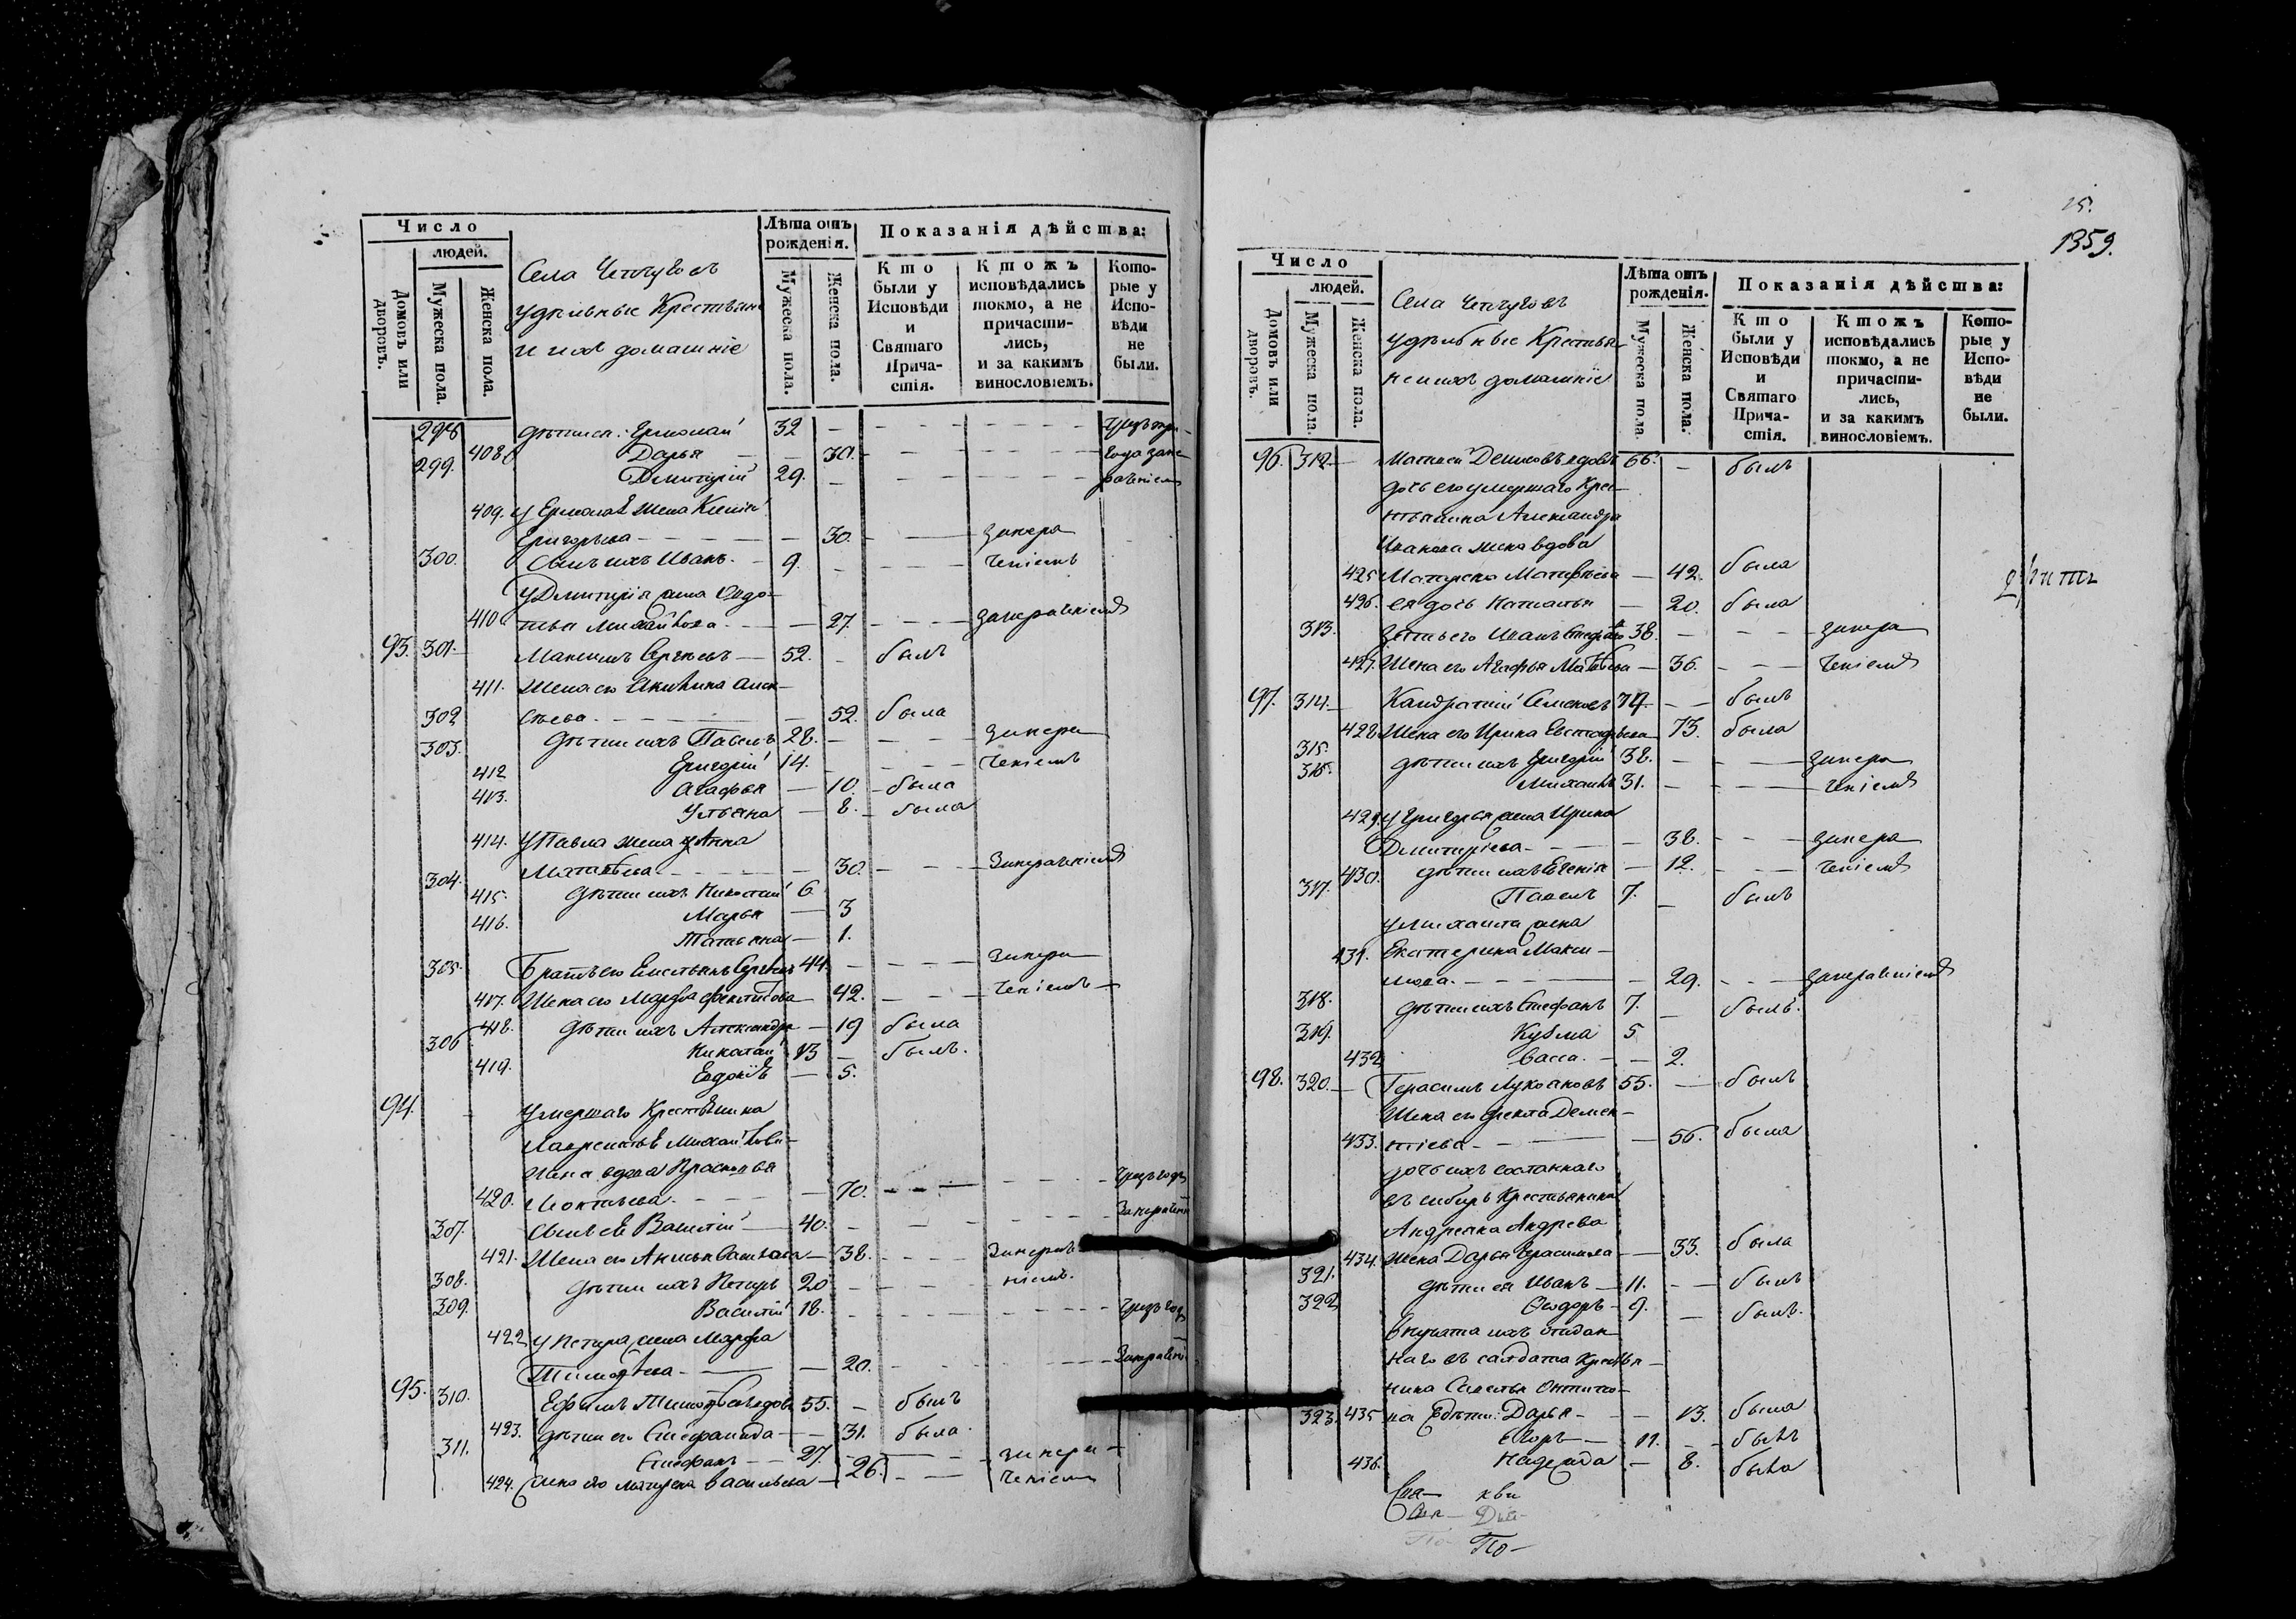 Число
людей.
Домовъ или дворовъ.
Мужеска пола.
Женска пола.
Села Чепчуговъ
удѣльные Крестьяне
и ихъ домашніе
Лѣта отъ рожденія.
Мужеска пола.
Женска пола.
Показанія дѣйства:
Кто были у Исповѣди и Святаго Причастія.
Ктожъ исповѣдались токмо, а не причастились, и за какимъ винословіемъ.
Которые у Исповѣди не были.
298 дѣти ея: Ермолай 32 — — —
408. Дарья — 30. — —
299. Димитрій 29. — — —
409. У Ермолая жена
Григорьева — — 30. — — занера
300. Сынъ ихъ Иванъ. — 9. — — ченіемъ
У Димитрія жена Евдо-
410 Михайлова — — 27. — — занераченіемъ
93. 301. Максимъ Сергѣевъ — 52. — былъ
411. Жена его Акилина Алек-
сѣева. — — 52. была
302 дѣти ихъ Павелъ 28. — — занера
303. Григорій 14. — — ченіемъ
412 Агафья — 10. — была
413. Ульяна — 8. — была
414. У Павла жена Анна
Матвѣева — — 30. — — занераченіемъ
304. дѣти ихъ Николай 6.
415. Марья — 3
416. Татьяна — 1.
305. Братъ его Емельянъ Сергѣевъ 44. — — занера
417. Жена его Марфа — 42. — — ченіемъ —
418. дѣти ихъ Александра — 19 была
306 Николай 13 — былъ.
419. Евдокія — 5.
94. Умершаго Крестьянина
Лаврентья Михайлова
жена вдова Прасковья
420. Леонтьева. — — 70. — — — чрезъ годъ
307. Сынъ ея Василій — 40. — — —
421. Жена его — 38. — — занера
308. дѣти ихъ Петръ 20 — — ніемъ.
309. Василій 18. — — — чрезъ годъ
422 У Петра жена Марфа
Тимофѣева — — 20. — — —
95. 310. Ефимъ вдовъ 55. — былъ
423. дѣти его Степанида — — 31. была
311. Стефанъ — — 27. — — занера —
424. жена его Матрена Васильева — 26. — — ченіемъ
15.
1359.
Число
людей.
Домовъ или дворовъ.
Мужеска пола.
Женска пола.
Села Чепчуговъ
удѣльные Крестья-
не и ихъ домашніе
Лѣта отъ рожденія.
Мужеска пола.
Женска пола.
Показанія дѣйства:
Кто были у Исповѣди и Святаго Причастія.
Ктожъ исповѣдались токмо, а не причастились, и за какимъ винословіемъ.
Которые у Исповѣди не были.
96. 312. — Матвей вдовъ 66. — былъ
дочь его умершаго Кре-
стьянина Александра
Иванова жена вдова
425 Матрена Матвѣева — 42. была
426. ея дочь Наталья — 20. была
313. зять его Иванъ 38. — — — занера
427. Жена его Агафья Матвѣева — 36. — — ченіемъ
97. 314. — Кандратій Семеновъ 74. — — былъ
428 Жена его Ирина Евстафьева — 73. была
315. дѣти ихъ Григорій 38. — — занера
316. Михаилъ 31. — — ченіемъ
429. У Григорья жена Ирина
Димитріева — — 38. — — занера
430. дѣти ихъ Евгенія — 12. — — ченіемъ
317. Павелъ 7. — былъ
У Михаила жена
431. Екатерина Макси-
мова. — — 29. — — занераченіемъ
318. дѣти ихъ Стефанъ 7. — былъ.
319. Кузма 5
432 Васса. — — 2.
98. 320. — Герасимъ Лукояновъ 55. — былъ
Жена его Фекла Демен-
433. тіева — — 56. была
дочь ихъ сосланнаго
въ сибирь Крестьянина
Андреяна Андреева
434. жена Дарья Герасимова — — 33. была
321. дѣти ея Иванъ — 11. — — былъ
322 Ѳеодоръ — 9. — былъ.
внучата ихъ отдан-
наго въ салдаты Крестья-
нина Савелья
323. 435 на дѣти: Дарья — — 13. была
Егоръ — 11. — — былъ
436. Надежда — 8. была
По-